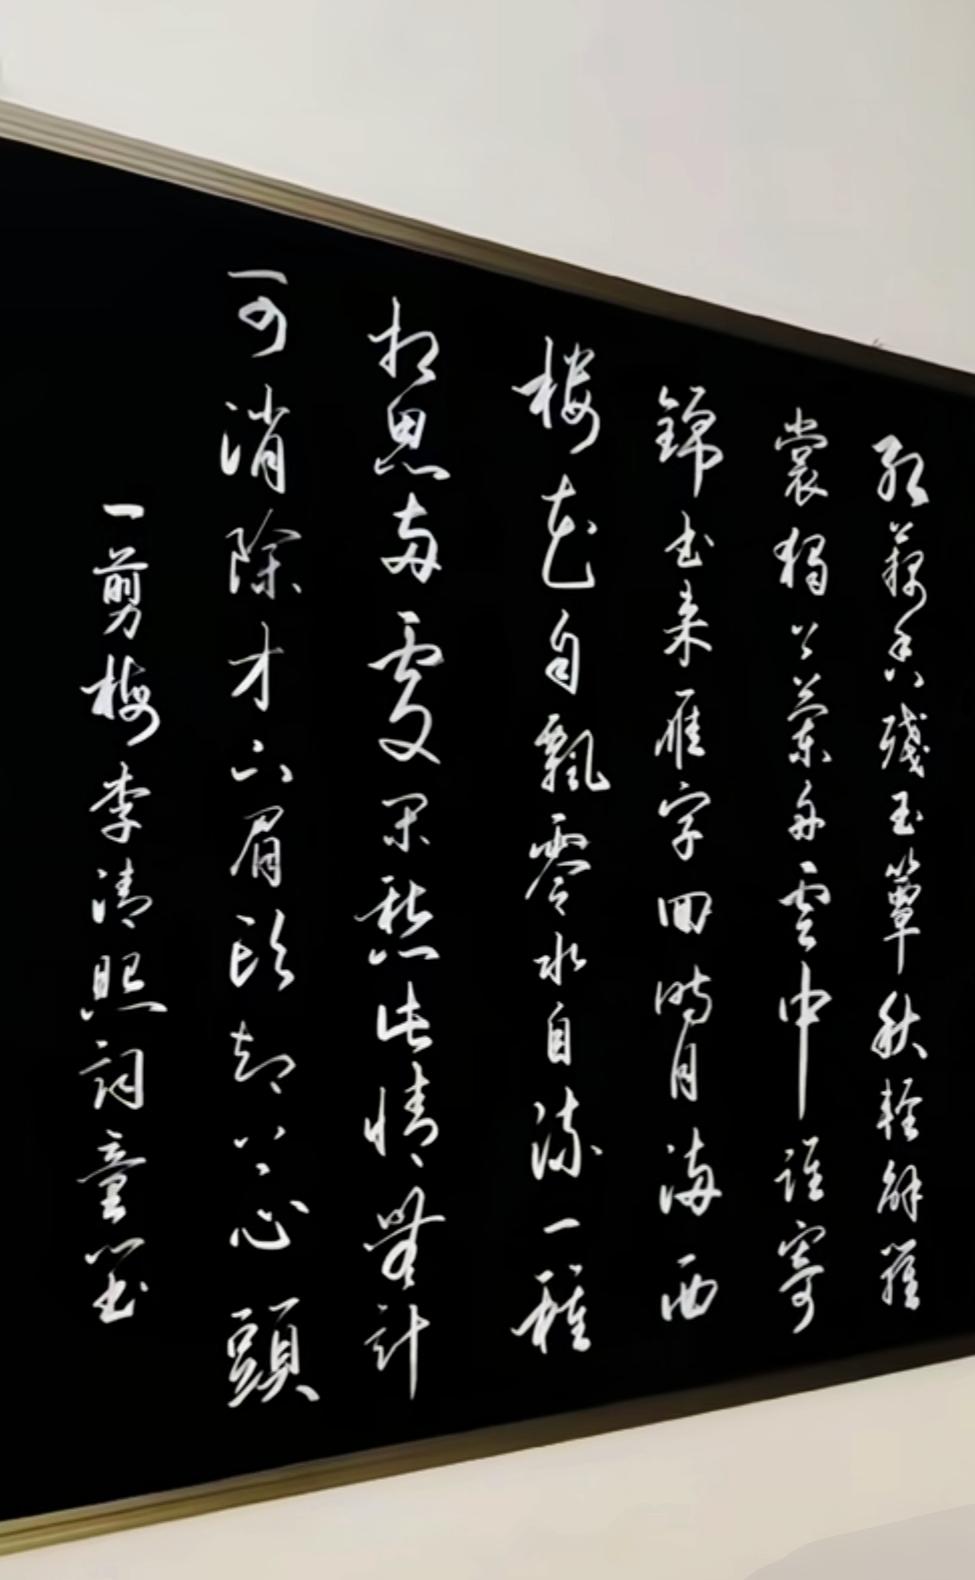 红藕香残玉簟秋轻解羅
裳獨上蘭舟雲中誰寄
錦书来雁字回時月满西
楼花自飄零水自流一種
相思两處闲愁此情無計
可消除才下眉头却上心頭
一剪梅李清照詞童笙